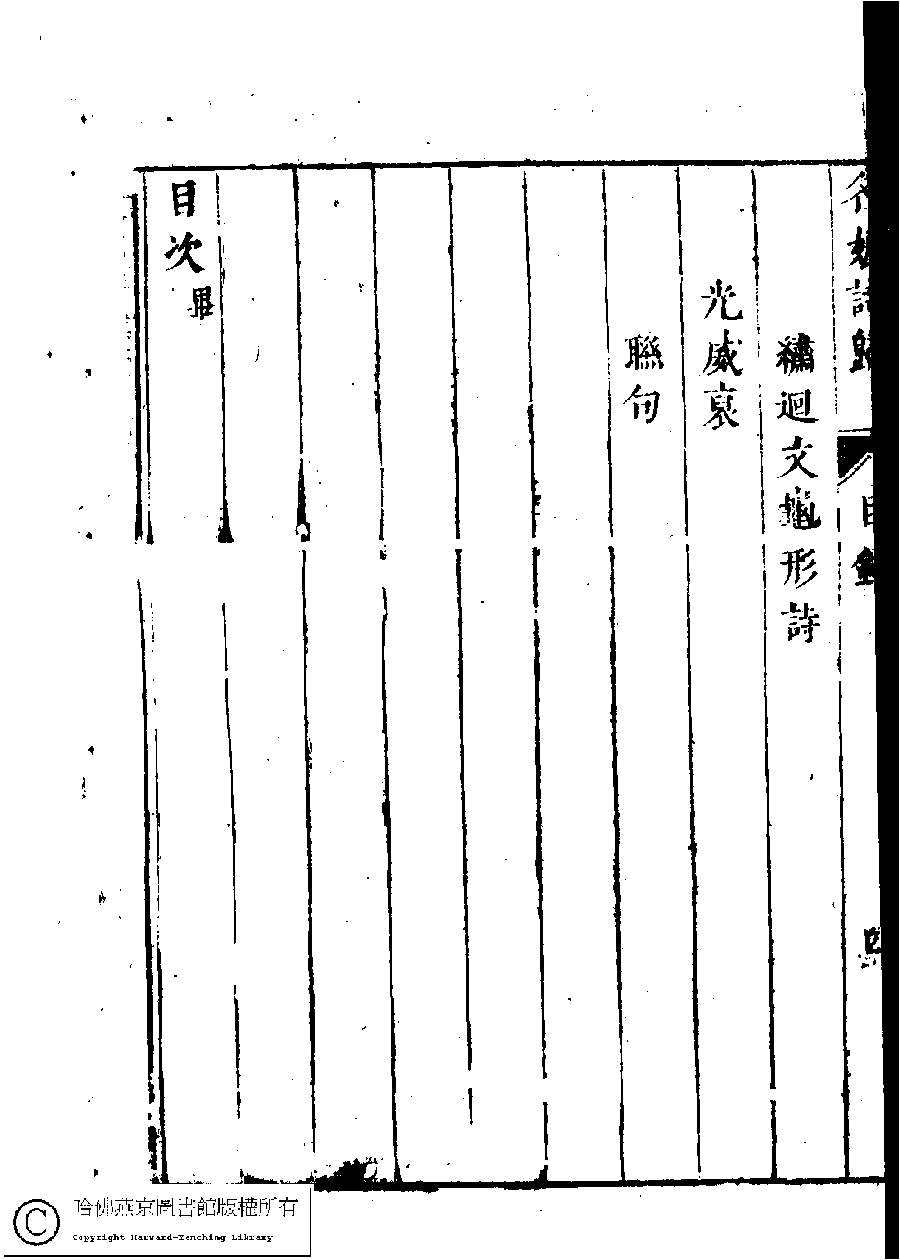 繡迴文龜形詩
光威裒
聯句
目次畢
哈佛燕京圖書館版權所有
Copyright Harvard-Yenching Library